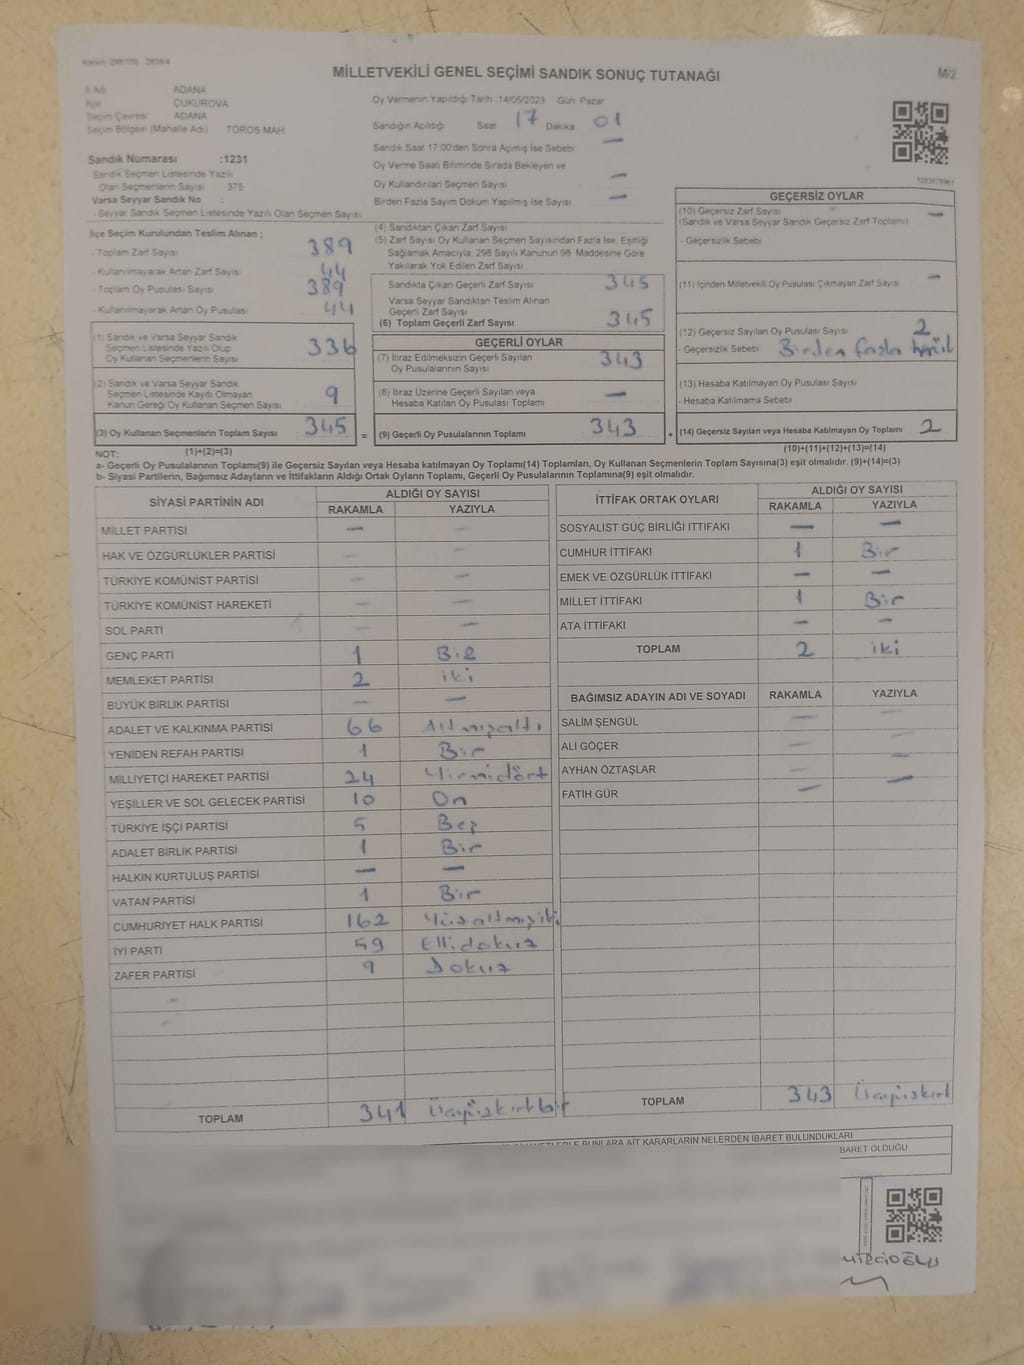 MİLLETVEKİLİ GENEL SEÇİMİ SANDIK SONUÇ TUTANAĞI
M/2
ADANA
İlçe ÇUKUROVA
Seçim Çevresi ADANA
Seçim Bölgesi (Mahalle Adı) TOROS MAH
Sandık Numarası :1231
Sandık Seçmen Listesinde Yazılı
Olan Seçmenlerin Sayısı 375
Varsa Seyyar Sandık No :
- Seyyar Sandık Seçmen Listesinde Yazılı Olan Seçmen Sayısı
Oy Vermenin Yapıldığı Tarih :14/05/2023 Gün Pazar
Sandığın Açıldığı Saat 17 Dakika 01
Sandık Saat 17:00'den Sonra Açılmış İse Sebebi —
Oy Verme Saati Bitiminde Sırada Bekleyen ve
Oy Kullandırılan Seçmen Sayısı —
Birden Fazla Sayım Döküm Yapılmış İse Sayısı —
İlçe Seçim Kurulundan Teslim Alınan ;
- Toplam Zarf Sayısı 389
- Kullanılmayarak Artan Zarf Sayısı 44
- Toplam Oy Pusulası Sayısı 389
- Kullanılmayarak Artan Oy Pusulası 44
(1) Sandık ve Varsa Seyyar Sandık
Seçmen Listesinde Yazılı Olup
Oy Kullanan Seçmenlerin Sayısı 336
(2) Sandık ve Varsa Seyyar Sandık
Seçmen Listesinde Kayıtlı Olmayan
Kanun Gereği Oy Kullanan Seçmen Sayısı 9
(3) Oy Kullanan Seçmenlerin Toplam Sayısı 345 =
(4) Sandıktan Çıkan Zarf Sayısı
(5) Zarf Sayısı Oy Kullanan Seçmen Sayısından Fazla İse, Eşitliği
Sağlamak Amacıyla; 298 Sayılı Kanunun 98. Maddesine Göre
Yakılarak Yok Edilen Zarf Sayısı
Sandıkta Çıkan Geçerli Zarf Sayısı 345
Varsa Seyyar Sandıktan Teslim Alınan
Geçerli Zarf Sayısı
(6) Toplam Geçerli Zarf Sayısı 345
GEÇERLİ OYLAR
(7) İtiraz Edilmeksizin Geçerli Sayılan
Oy Pusulalarının Sayısı 343
(8) İtiraz Üzerine Geçerli Sayılan veya
Hesaba Katılan Oy Pusulası Toplamı —
(9) Geçerli Oy Pusulalarının Toplamı 343 +
GEÇERSİZ OYLAR
(10) Geçersiz Zarf Sayısı —
(Sandık ve Varsa Seyyar Sandık Geçersiz Zarf Toplamı)
- Geçersizlik Sebebi
(11) İçinden Milletvekili Oy Pusulası Çıkmayan Zarf Sayısı —
(12) Geçersiz Sayılan Oy Pusulası Sayısı 2
- Geçersizlik Sebebi Birden fazla
(13) Hesaba Katılmayan Oy Pusulası Sayısı
- Hesaba Katılmama Sebebi
(14) Geçersiz Sayılan veya Hesaba Katılmayan Oy Toplamı 2
NOT: (1)+(2)=(3) (10)+(11)+(12)+(13)=(14)
a- Geçerli Oy Pusulasının Toplamı(9) ile Geçersiz Sayılan veya Hesaba katılmayan Oy Toplamı(14) Toplamları, Oy Kullanan Seçmenlerin Toplam Sayısına(3) eşit olmalıdır. (9)+(14)=(3)
b- Siyasi Partilerin, Bağımsız Adayların ve İttifakların Aldığı Ortak Oyların Toplamı, Geçerli Oy Pusulalarının Toplamına(9) eşit olmalıdır.
SİYASİ PARTİNİN ADI ALDIĞI OY SAYISI
RAKAMLA YAZIYLA
MİLLET PARTİSİ — —
HAK VE ÖZGÜRLÜKLER PARTİSİ — —
TÜRKİYE KOMÜNİST PARTİSİ — —
TÜRKİYE KOMÜNİST HAREKETİ — —
SOL PARTİ — —
GENÇ PARTİ 1 Bir
MEMLEKET PARTİSİ 2 iki
BÜYÜK BİRLİK PARTİSİ — —
ADALET VE KALKINMA PARTİSİ 66 Altmışaltı
YENİDEN REFAH PARTİSİ 1 Bir
MİLLİYETÇİ HAREKET PARTİSİ 24 Yirmidört
YEŞİLLER VE SOL GELECEK PARTİSİ 10 On
TÜRKİYE İŞÇİ PARTİSİ 5 Beş
ADALET BİRLİK PARTİSİ 1 Bir
HALKIN KURTULUŞ PARTİSİ — —
VATAN PARTİSİ 1 Bir
CUMHURİYET HALK PARTİSİ 162 Yüzaltmışiki
İYİ PARTİ 59 Ellidokuz
ZAFER PARTİSİ 9 Dokuz
TOPLAM 341 Üçyüzkırkbir
İTTİFAK ORTAK OYLARI ALDIĞI OY SAYISI
RAKAMLA YAZIYLA
SOSYALİST GÜÇ BİRLİĞİ İTTİFAKI — —
CUMHUR İTTİFAKI 1 Bir
EMEK VE ÖZGÜRLÜK İTTİFAKI — —
MİLLET İTTİFAKI 1 Bir
ATA İTTİFAKI — —
TOPLAM 2 iki
BAĞIMSIZ ADAYIN ADI VE SOYADI RAKAMLA YAZIYLA
SALİM ŞENGÜL — —
ALİ GÖÇER — —
AYHAN ÖZTAŞLAR — —
FATİH GÜR — —
TOPLAM 343 Üçyüzkırk
BUNLARA AİT KARARLARIN NELERDEN İBARET BULUNDUKLARI
BARET OLDUĞU